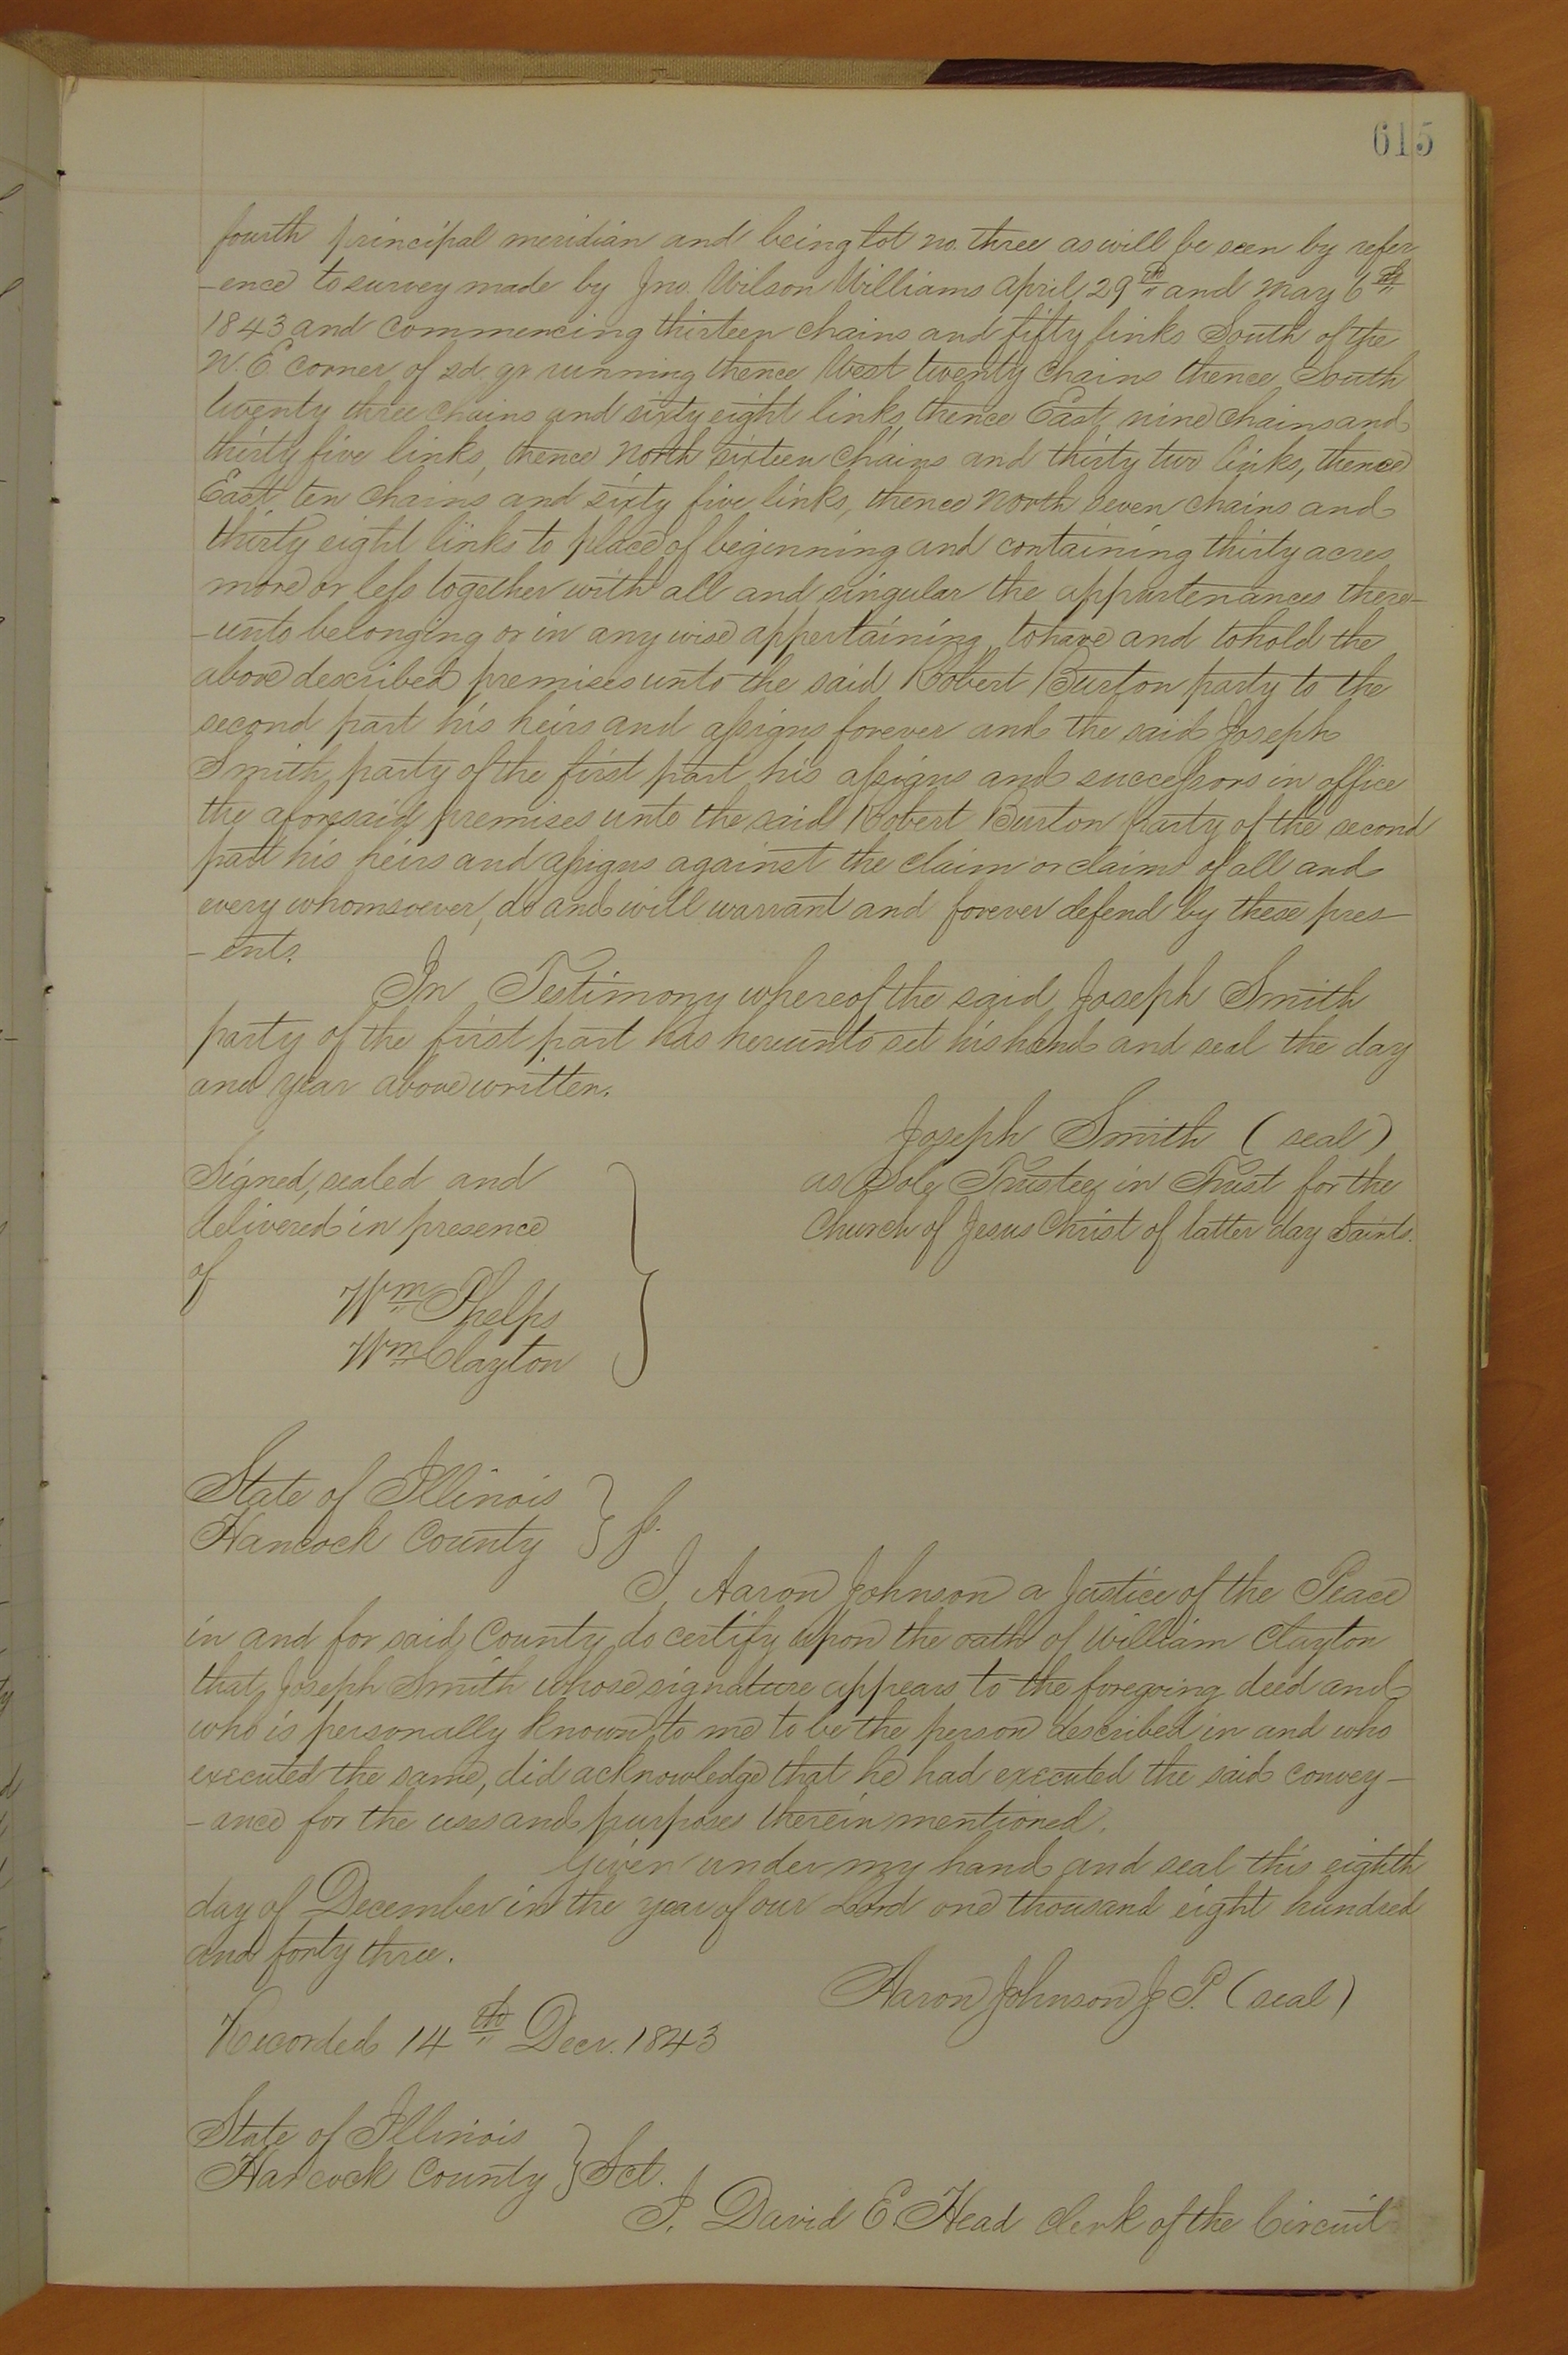 615
fourth principal meridian and being lot no. three as will be seen by refer
-ence to survey made by Jno. Wilson Williams April 29th and May 6th
1843 and commencing thirteen chains and fifty links South of the
N. E. corner of sd. qr running thence West twenty chains thence South
twenty three chains and sixty eight links, thence East nine chains and
thirty five links, thence North sixteen chains and thirty two links, thence
East ten chains and sixty five links, thence North seven chains and
thirty eight links to place of beginning and containing thirty acres
more or less together with all and singular the appurtenances there-
-unto belonging or in any wise appertaining, to have and to hold the
above described premises unto the said Robert Burton party to the
second part his heirs and assigns forever and the said Joseph
Smith, party of the first part, his assigns and successors in office
the aforesaid premises unto the said Robert Burton party of the second
part his heirs and assigns against the claim or claims of all and
every whomsoever, do and will warrant and forever defend by these pres-
-ents.
In Testimony whereof the said Joseph Smith
party of the first part has hereunto set his hand and seal the day
and year above written.
Joseph Smith (seal)
as Sole Trustee in Trust for the
Church of Jesus Christ of latter day Saints.
Signed, sealed and
delivered in presence
of
Wm Phelps
Wm Clayton
State of Illinois
Hancock County } ss.
I, Aaron Johnson a Justice of the Peace
in and for said County, do certify upon the oath of William Clayton
that Joseph Smith whose signature appears to the foregoing deed and
who is personally known to me to be the person described in and who
executed the same, did acknowledge that he had executed the said convey-
-ance for the uses and purposes therein mentioned.
Given under my hand and seal this eighth
day of December in the year of our Lord one thousand eight hundred
and forty three.
Aaron Johnson J. P. (seal)
Recorded 14th Decr. 1843
State of Illinois
Hancock County } Sct.
I, David E. Head Clerk of the Circuit